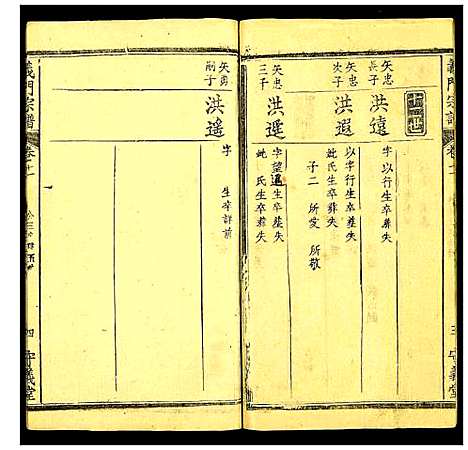 義門宗譜
卷十一
三
守義堂
矢忠
長子
洪遠
字以行生卒葬失
矢忠
次子
洪遐
以字行生卒葬失
妣氏生卒葬失
子二 所愛 所敬
矢忠
三子
洪遲
字望遠生卒葬失
妣氏生卒葬失
矢勇
嗣子
洪遙
字 生卒詳前
義門宗譜
卷十一
四
守義堂